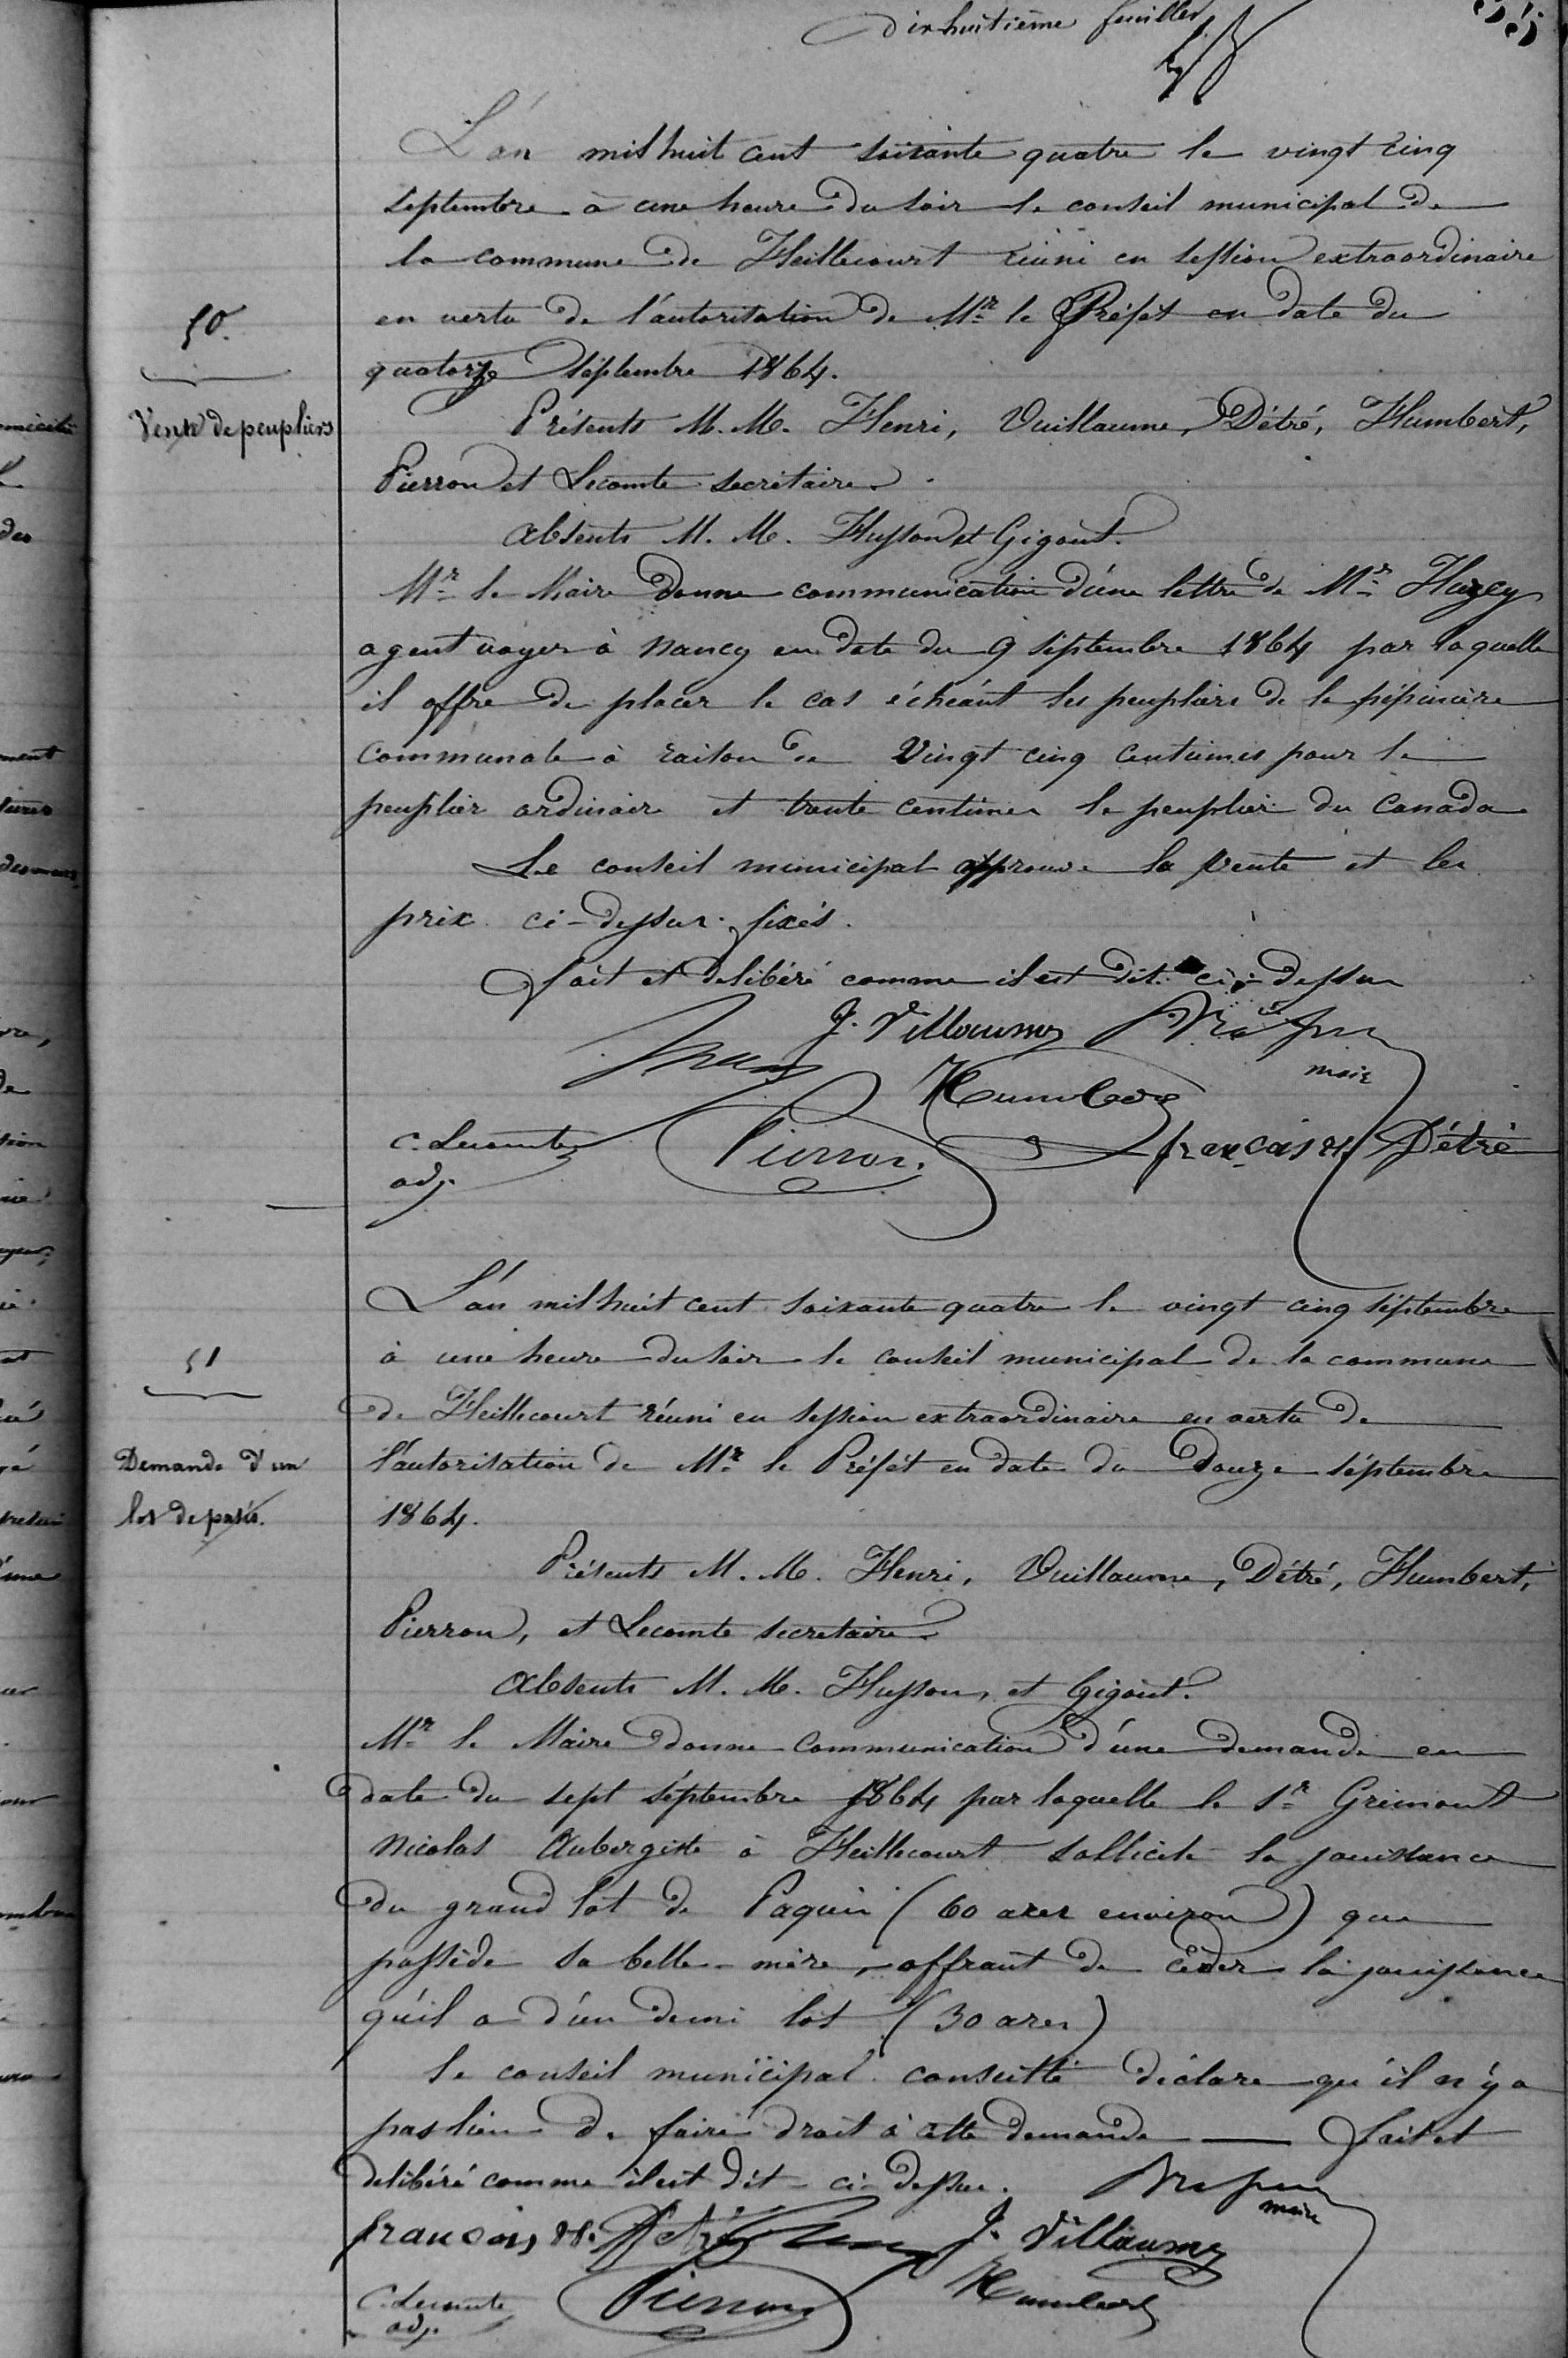 Dixhuitième feuillet
L'an mil huit cent soixante quatre le vingt cinq
septembre à une heure du soir le conseil municipal de
la commune de Heillecourt réuni en session extraordinaire
en vertu de l'autorisation de Mr le Préfet en date du
quatorze septembre 1864.
50.
Vente de peupliers
Présents M. M. Henri, Vuillaume, Détré, Humbert,
Pierron et Lecomte secrétaire.
Absents M. M. Husson et Gigout.
Mr le Maire donne communication d'une lettre de Mr Hazey
agent voyer à Nancy en date du 9 septembre 1864 par laquelle
il offre de placer le cas échéant les peupliers de la pépinière
communale à raison de Vingt cinq centimes pour le
peuplier ordinaire et trente centimes le peuplier du Canada
Le conseil municipal approuve la vente et les
prix ci-dessus fixés.
fait et délibéré comme il est dit ci-dessus
J. Villaume
maire
Humbert
C. Lecomte
adj.
Pierron
françois Détré
L'an mil huit cent soixante quatre le vingt cinq septembre
à une heure du soir le conseil municipal de la commune
de Heillecourt réuni en session extraordinaire en vertu de
l'autorisation de Mr le Préfet en date du douze septembre
1864.
51
Demande d'un
lot de patis.
Présents M. M. Henri, Vuillaume, Détré, Humbert,
Pierron, et Lecomte secretaire.
Absents M. M. Husson, et Gigout.
Mr le Maire donne communication d'une demande en
date du sept septembre 1864 par laquelle le Sr Grimont
Nicolas Aubergiste à Heillecourt sollicite la jouissance
du grand lot de Paquis (60 ares environ) que
possède sa belle-mère, offrant de céder la jouissance
qu'il a d'un demi lot (30 ares)
Le conseil municipal consulté déclare qu'il n'y a
pas lieu de faire droit à cette demande — fait et
delibéré comme il est dit ci-dessus.
maire
françois Détré J. Villaume
C. Lecomte
adj.
Pierron
Humbert